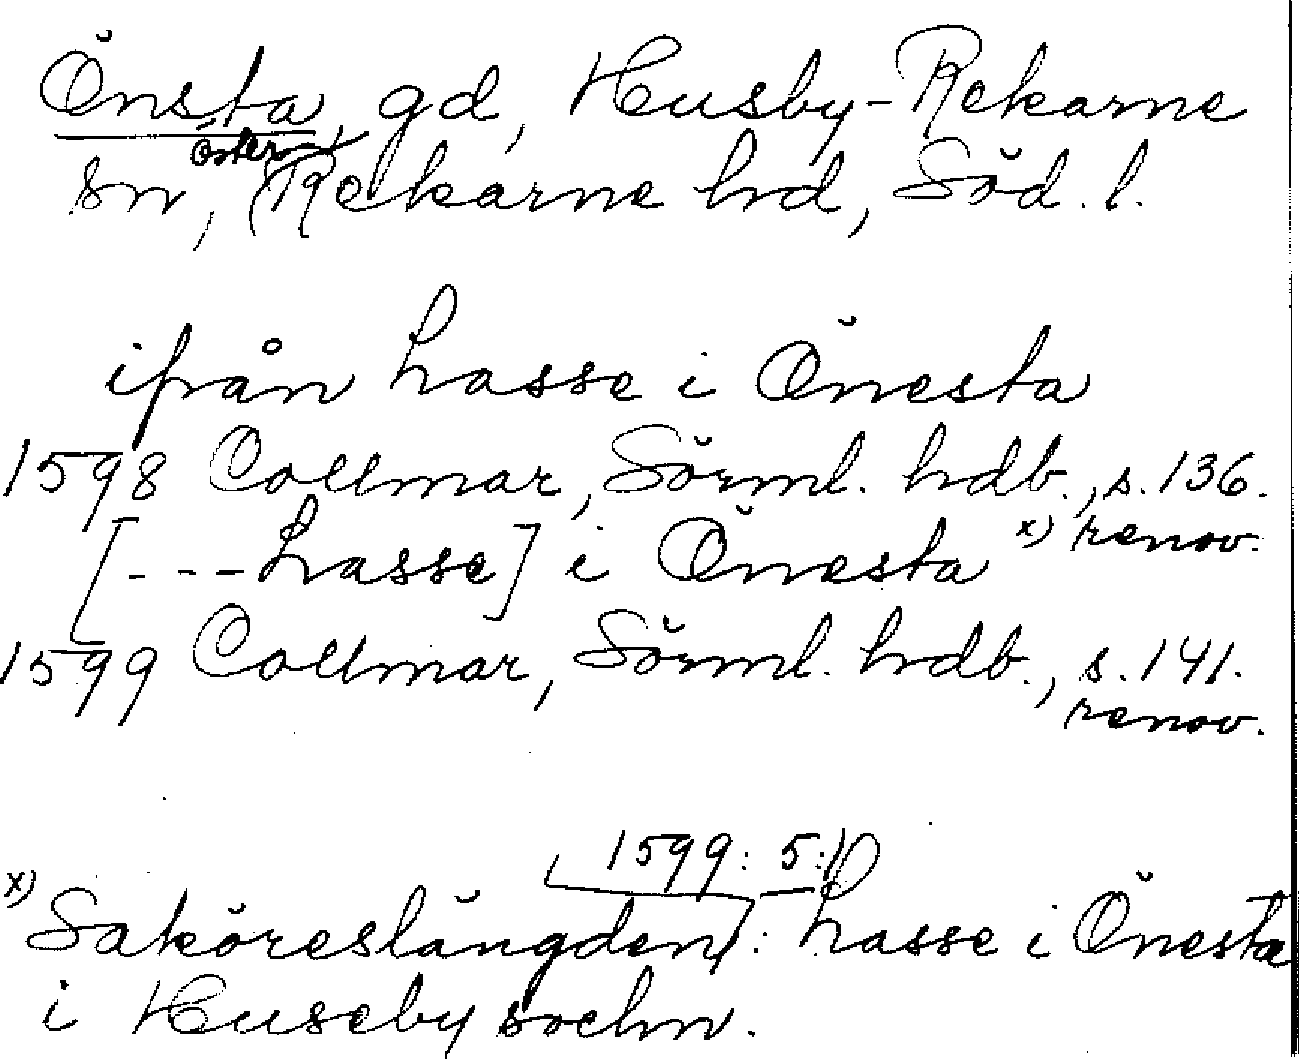 Önsta, gd, Husby-Rekarne
sn, Öster-Rekarne hd, Söd. l.
ifrån Lasse i Önesta
1598 Collmar, Sörml. hdb., s. 136.
renov.
[---Lasse] i Önesta x)
1599 Collmar, Sörml. hdb., s. 141.
renov.
1599: 5:
x) Saköreslängden: Lasse i Önesta
i Huseby sochn.